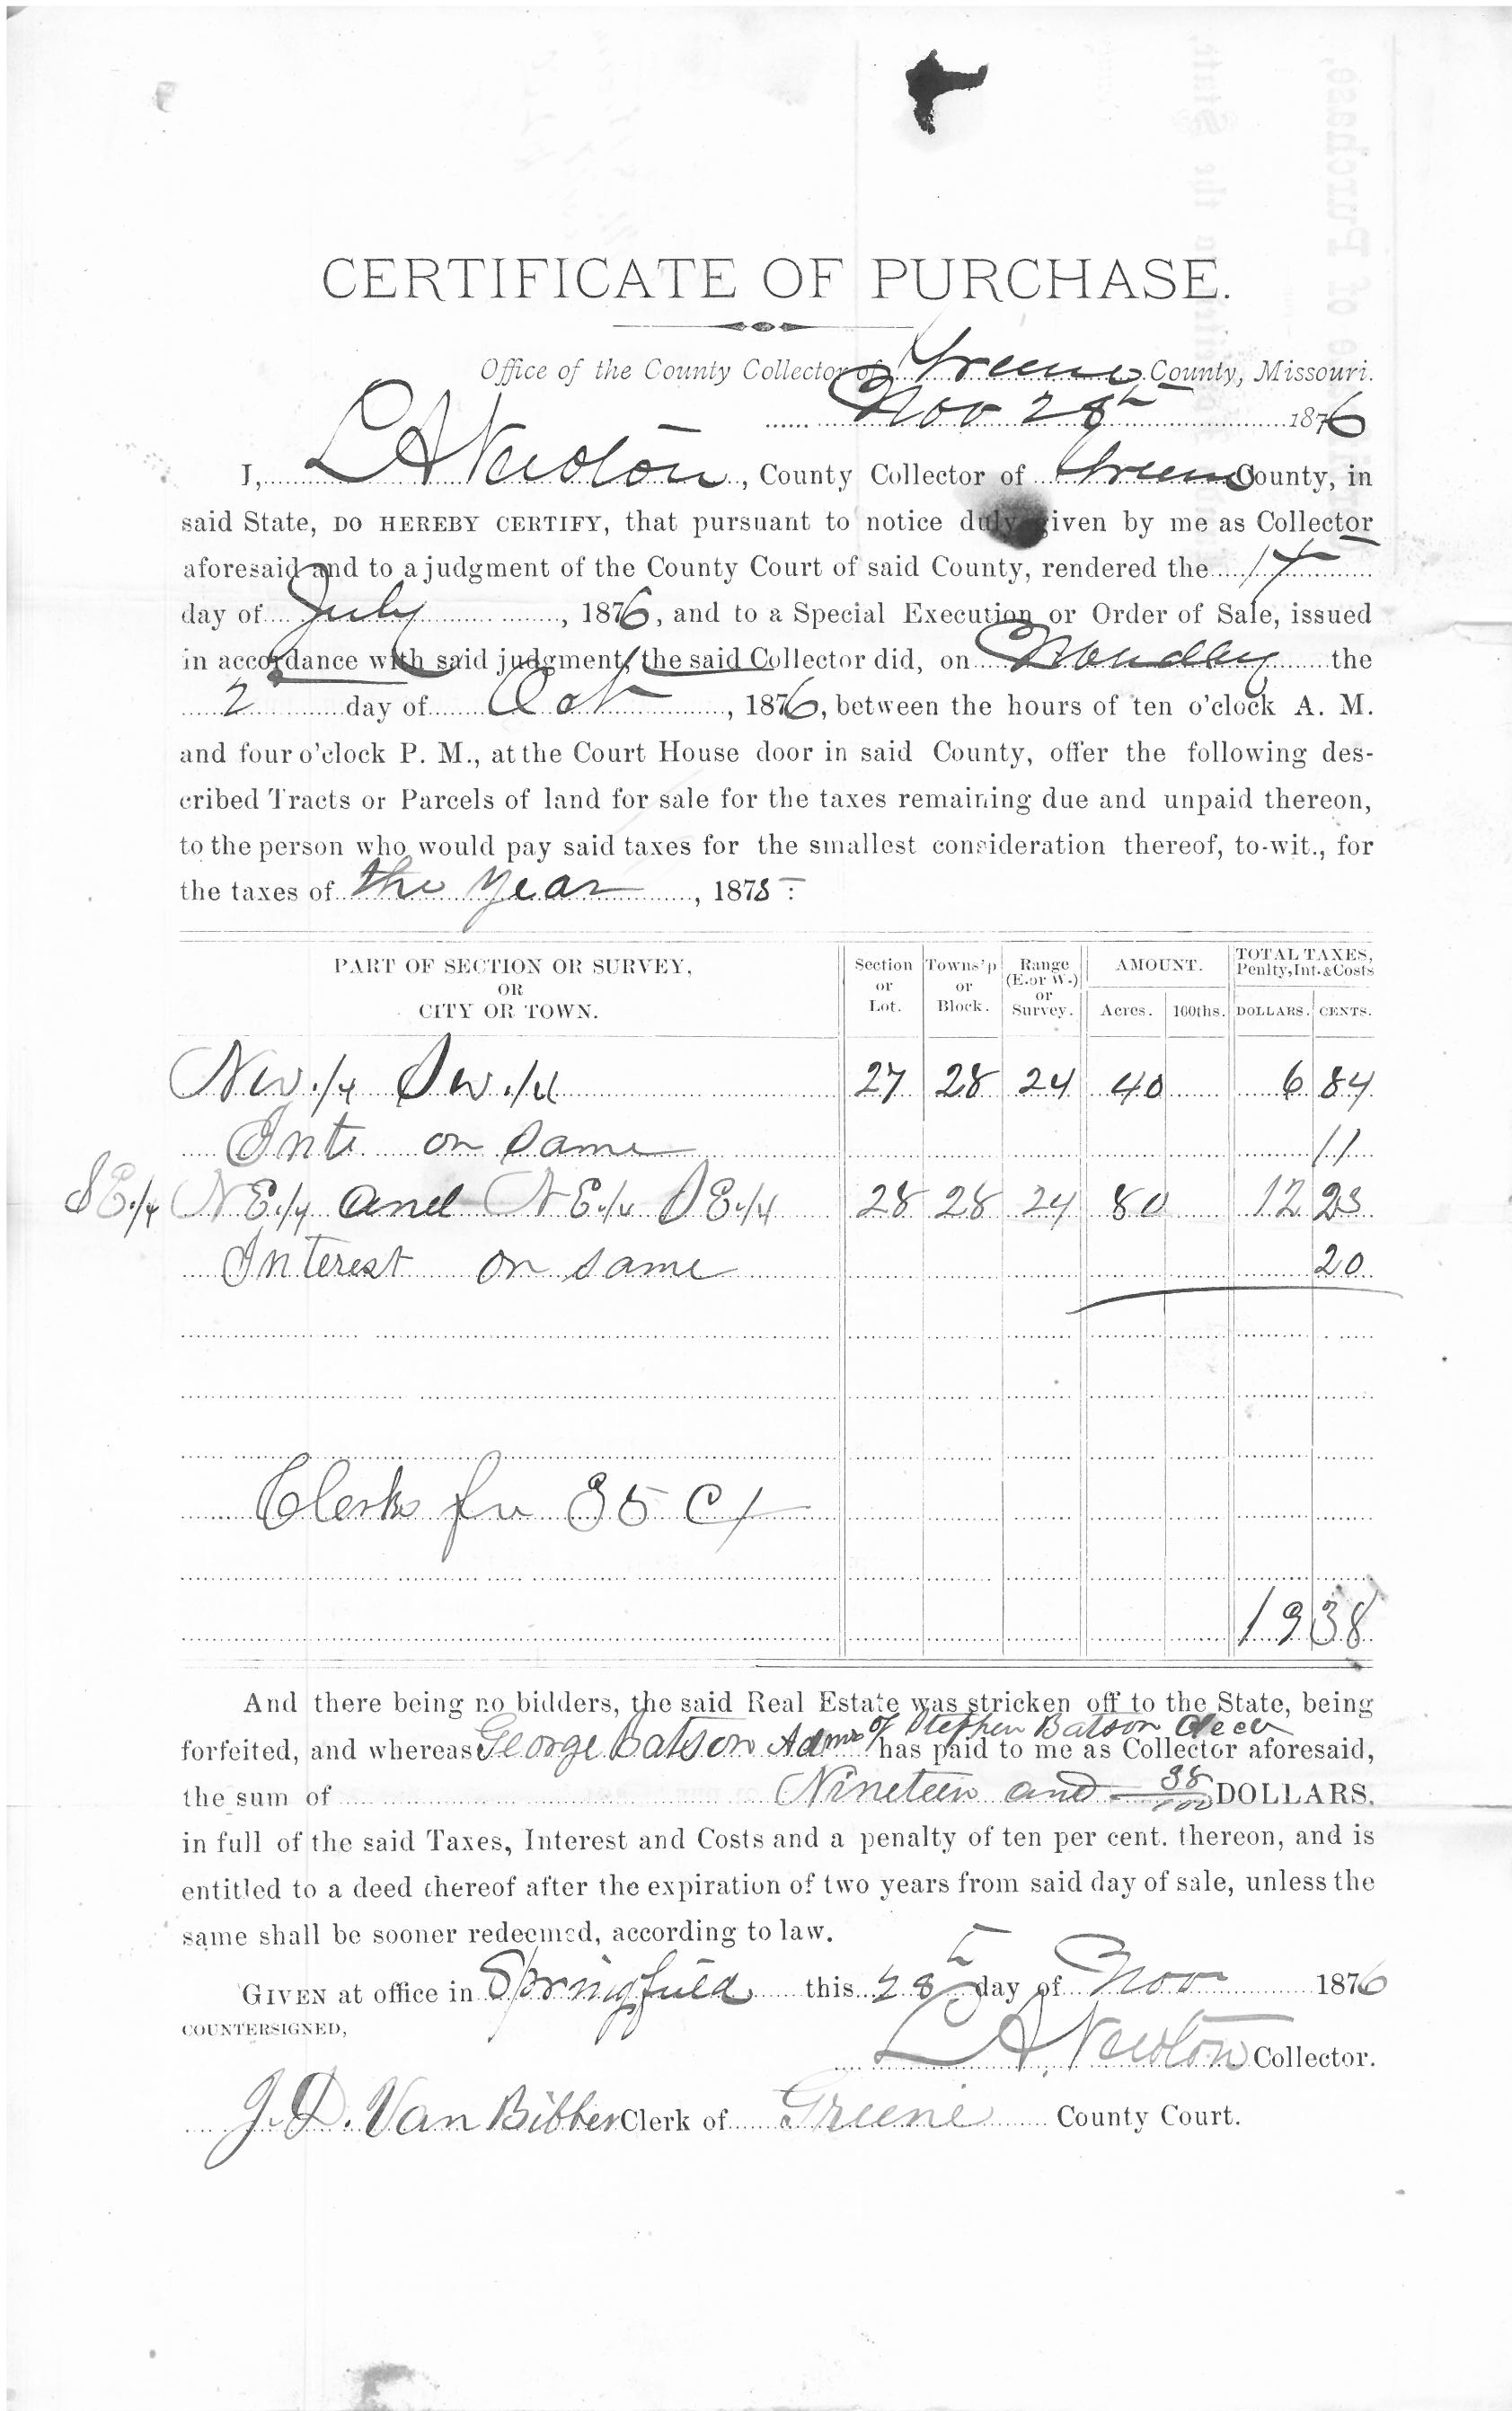 CERTIFICATE OF PURCHASE.
Office of the County Collector of Greene County, Missouri.
Nov 28th 1876
I, L A Newton, County Collector of Greene County, in
said State, DO HEREBY CERTIFY, that pursuant to notice duly given by me as Collector
aforesaid and to a judgment of the County Court of said County, rendered the 17
day of July, 1876, and to a Special Execution or Order of Sale, issued
in accordance with said judgment, the said Collector did, on Monday the
2 day of Oct, 1876, between the hours of ten o'clock A. M.
and four o'clock P. M., at the Court House door in said County, offer the following des-
cribed Tracts or Parcels of land for sale for the taxes remaining due and unpaid thereon,
to the person who would pay said taxes for the smallest consideration thereof, to-wit., for
the taxes of the year, 1875:
PART OF SECTION OR SURVEY, OR CITY OR TOWN. Section or Lot. Towns'p or Block. Range (E. or W.) or Survey. AMOUNT. Acres. 100ths. TOTAL TAXES, Penlty, Int. & Costs DOLLARS. CENTS.
Nw 1/4 Sw 1/4 27 28 24 40 6 84
Int on same 11
SE 1/4 NE 1/4 and NE 1/4 SE 1/4 28 28 24 80 12 23
Interest on same 20
Clerks fee 35 Ct
19 38
And there being no bidders, the said Real Estate was stricken off to the State, being
forfeited, and whereas George Batson Admr of Stephen Batson decd has paid to me as Collector aforesaid,
the sum of Nineteen and 38/100 DOLLARS.
in full of the said Taxes, Interest and Costs and a penalty of ten per cent. thereon, and is
entitled to a deed thereof after the expiration of two years from said day of sale, unless the
same shall be sooner redeemed, according to law.
GIVEN at office in Springfield this 28th day of Nov 1876
COUNTERSIGNED,
L A Newton Collector.
J. D. Van Bibber Clerk of Greene County Court.